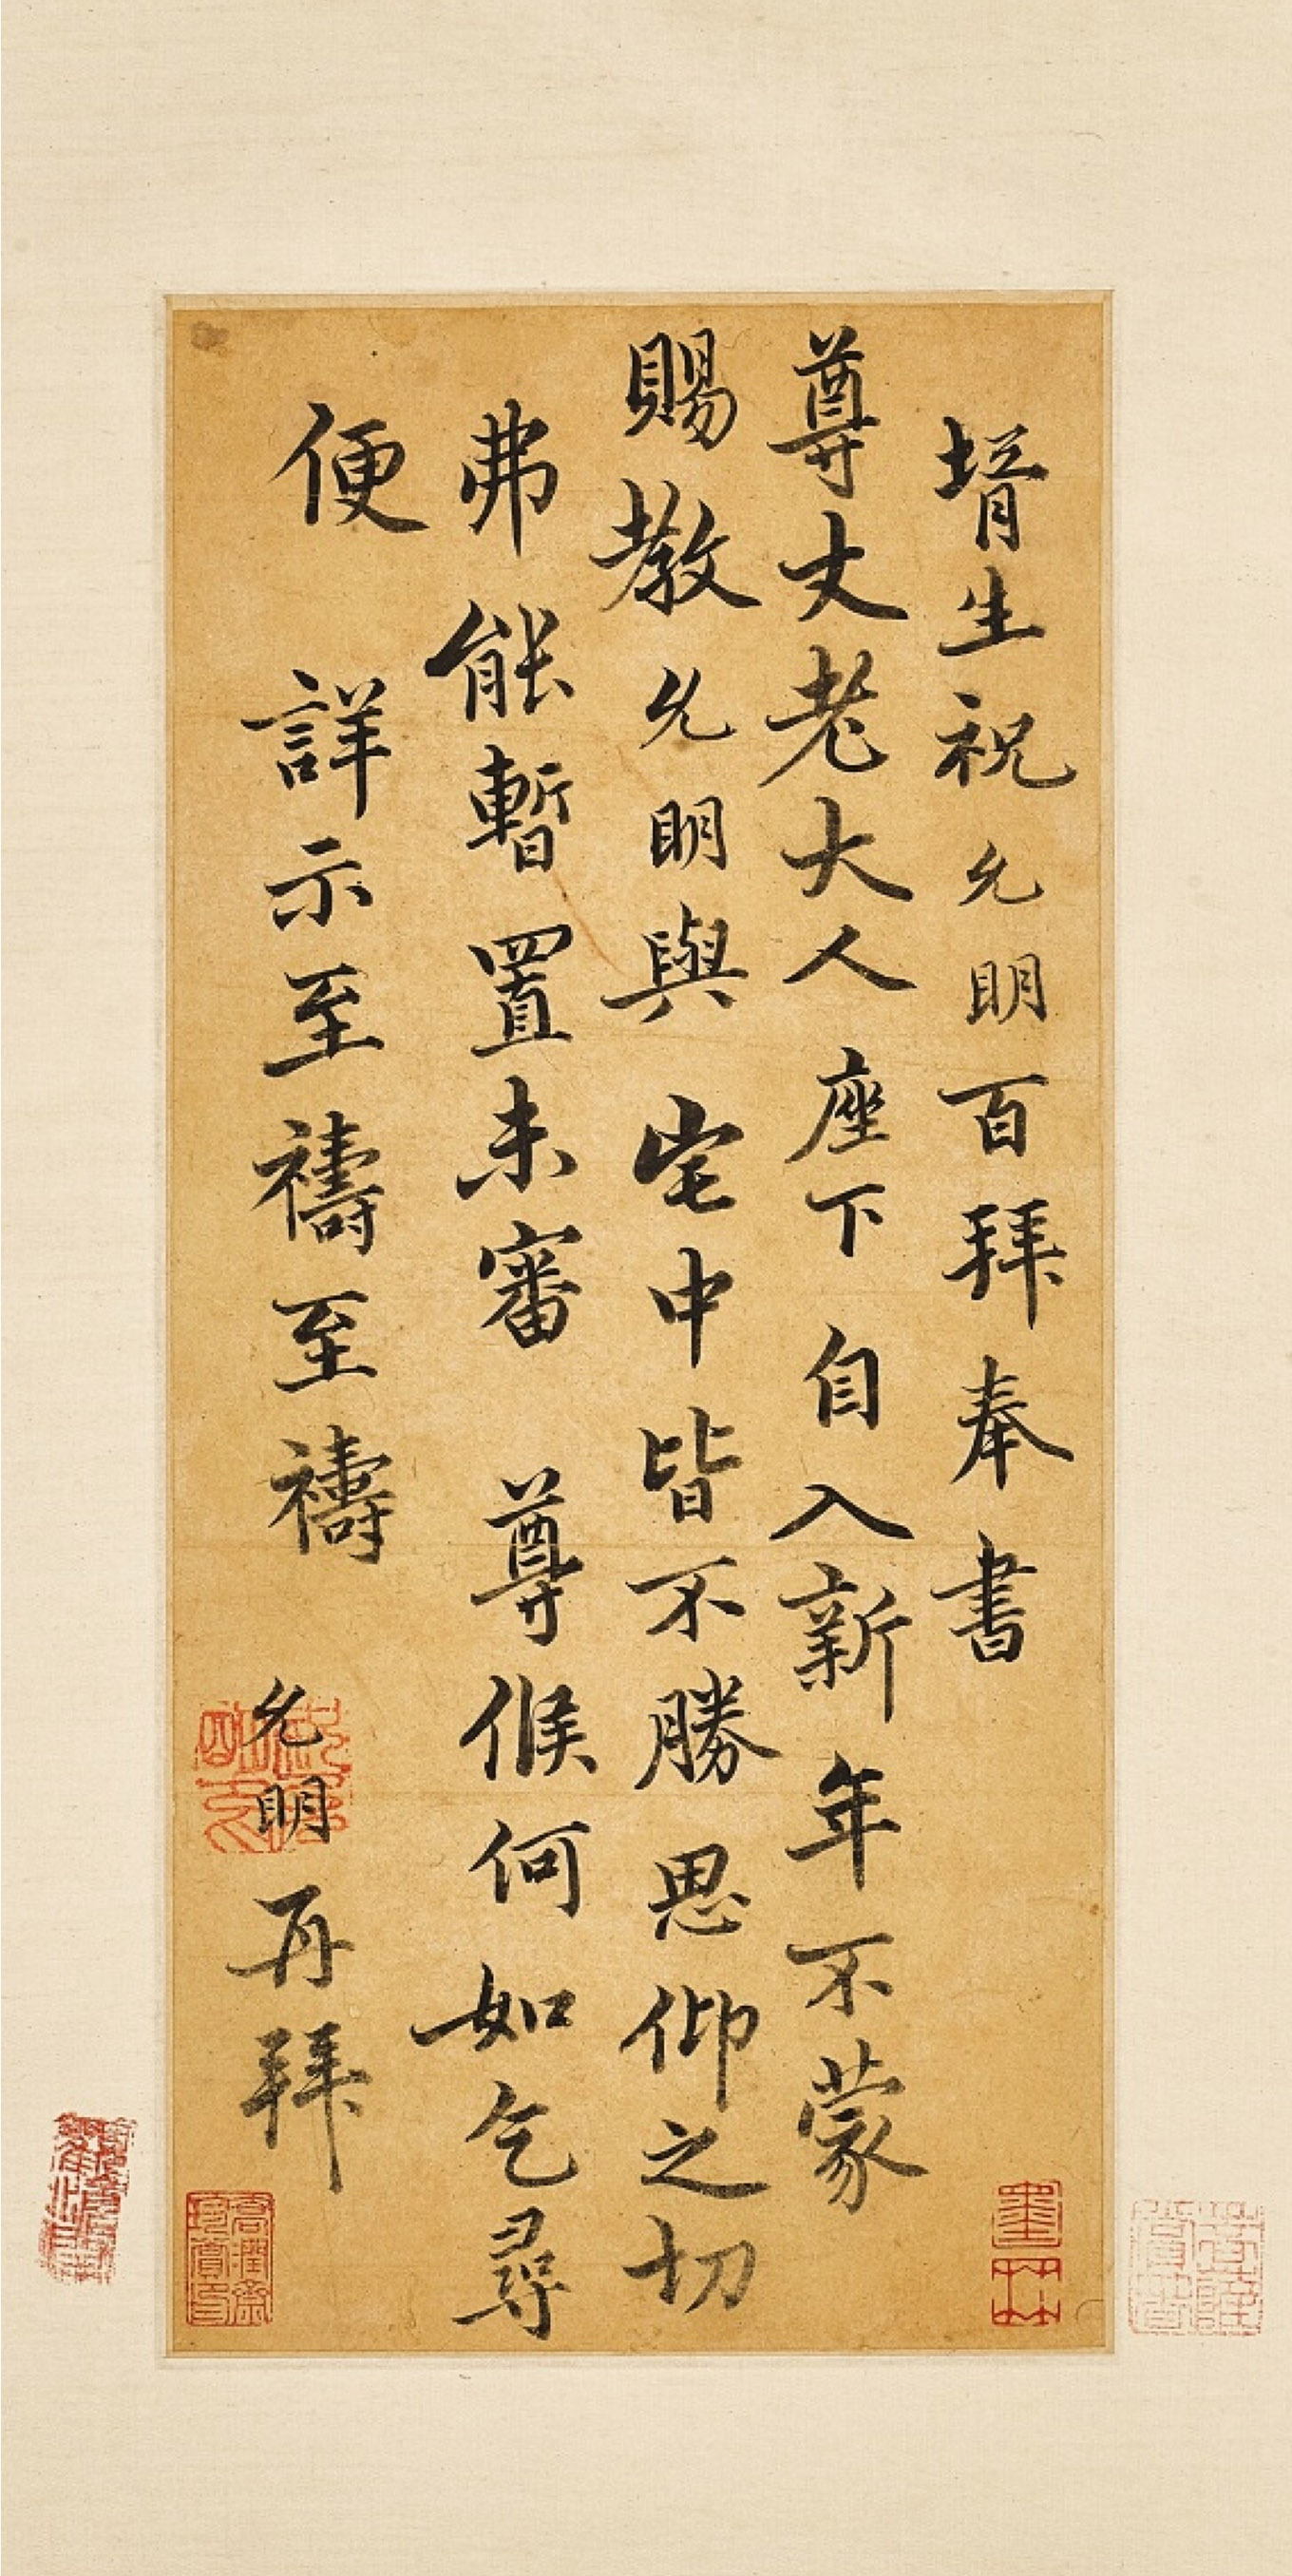 壻生祝允明百拜奉書
尊丈老大人座下自入新年不蒙
賜教允明與宅中皆不勝思仰之切
弗能暫置未審尊候何如乞尋
便詳示至禱至禱允明再拜
墨林